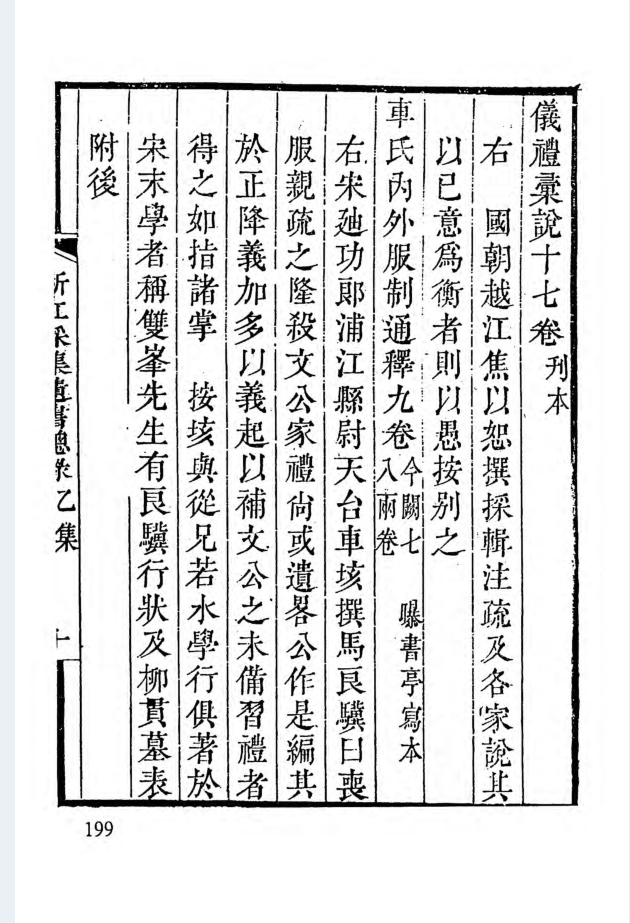 儀禮彙說十七卷 刊本
右 國朝越江焦以恕撰採輯注疏及各家說其
以已意爲衡者則以愚按别之
車氏內外服制通釋九卷 今闕七八兩卷 曝書亭寫本
右宋廸功郎浦江縣尉天台車垓撰馬良驥曰喪
服親疏之隆殺文公家禮尙或遺畧公作是編其
於正降義加多以義起以補文公之未備習禮者
得之如指諸掌 按垓與從兄若水學行俱著於
宋末學者稱雙峯先生有良驥行狀及柳貫墓表
附後
浙江採集遺書總录乙集
十
199